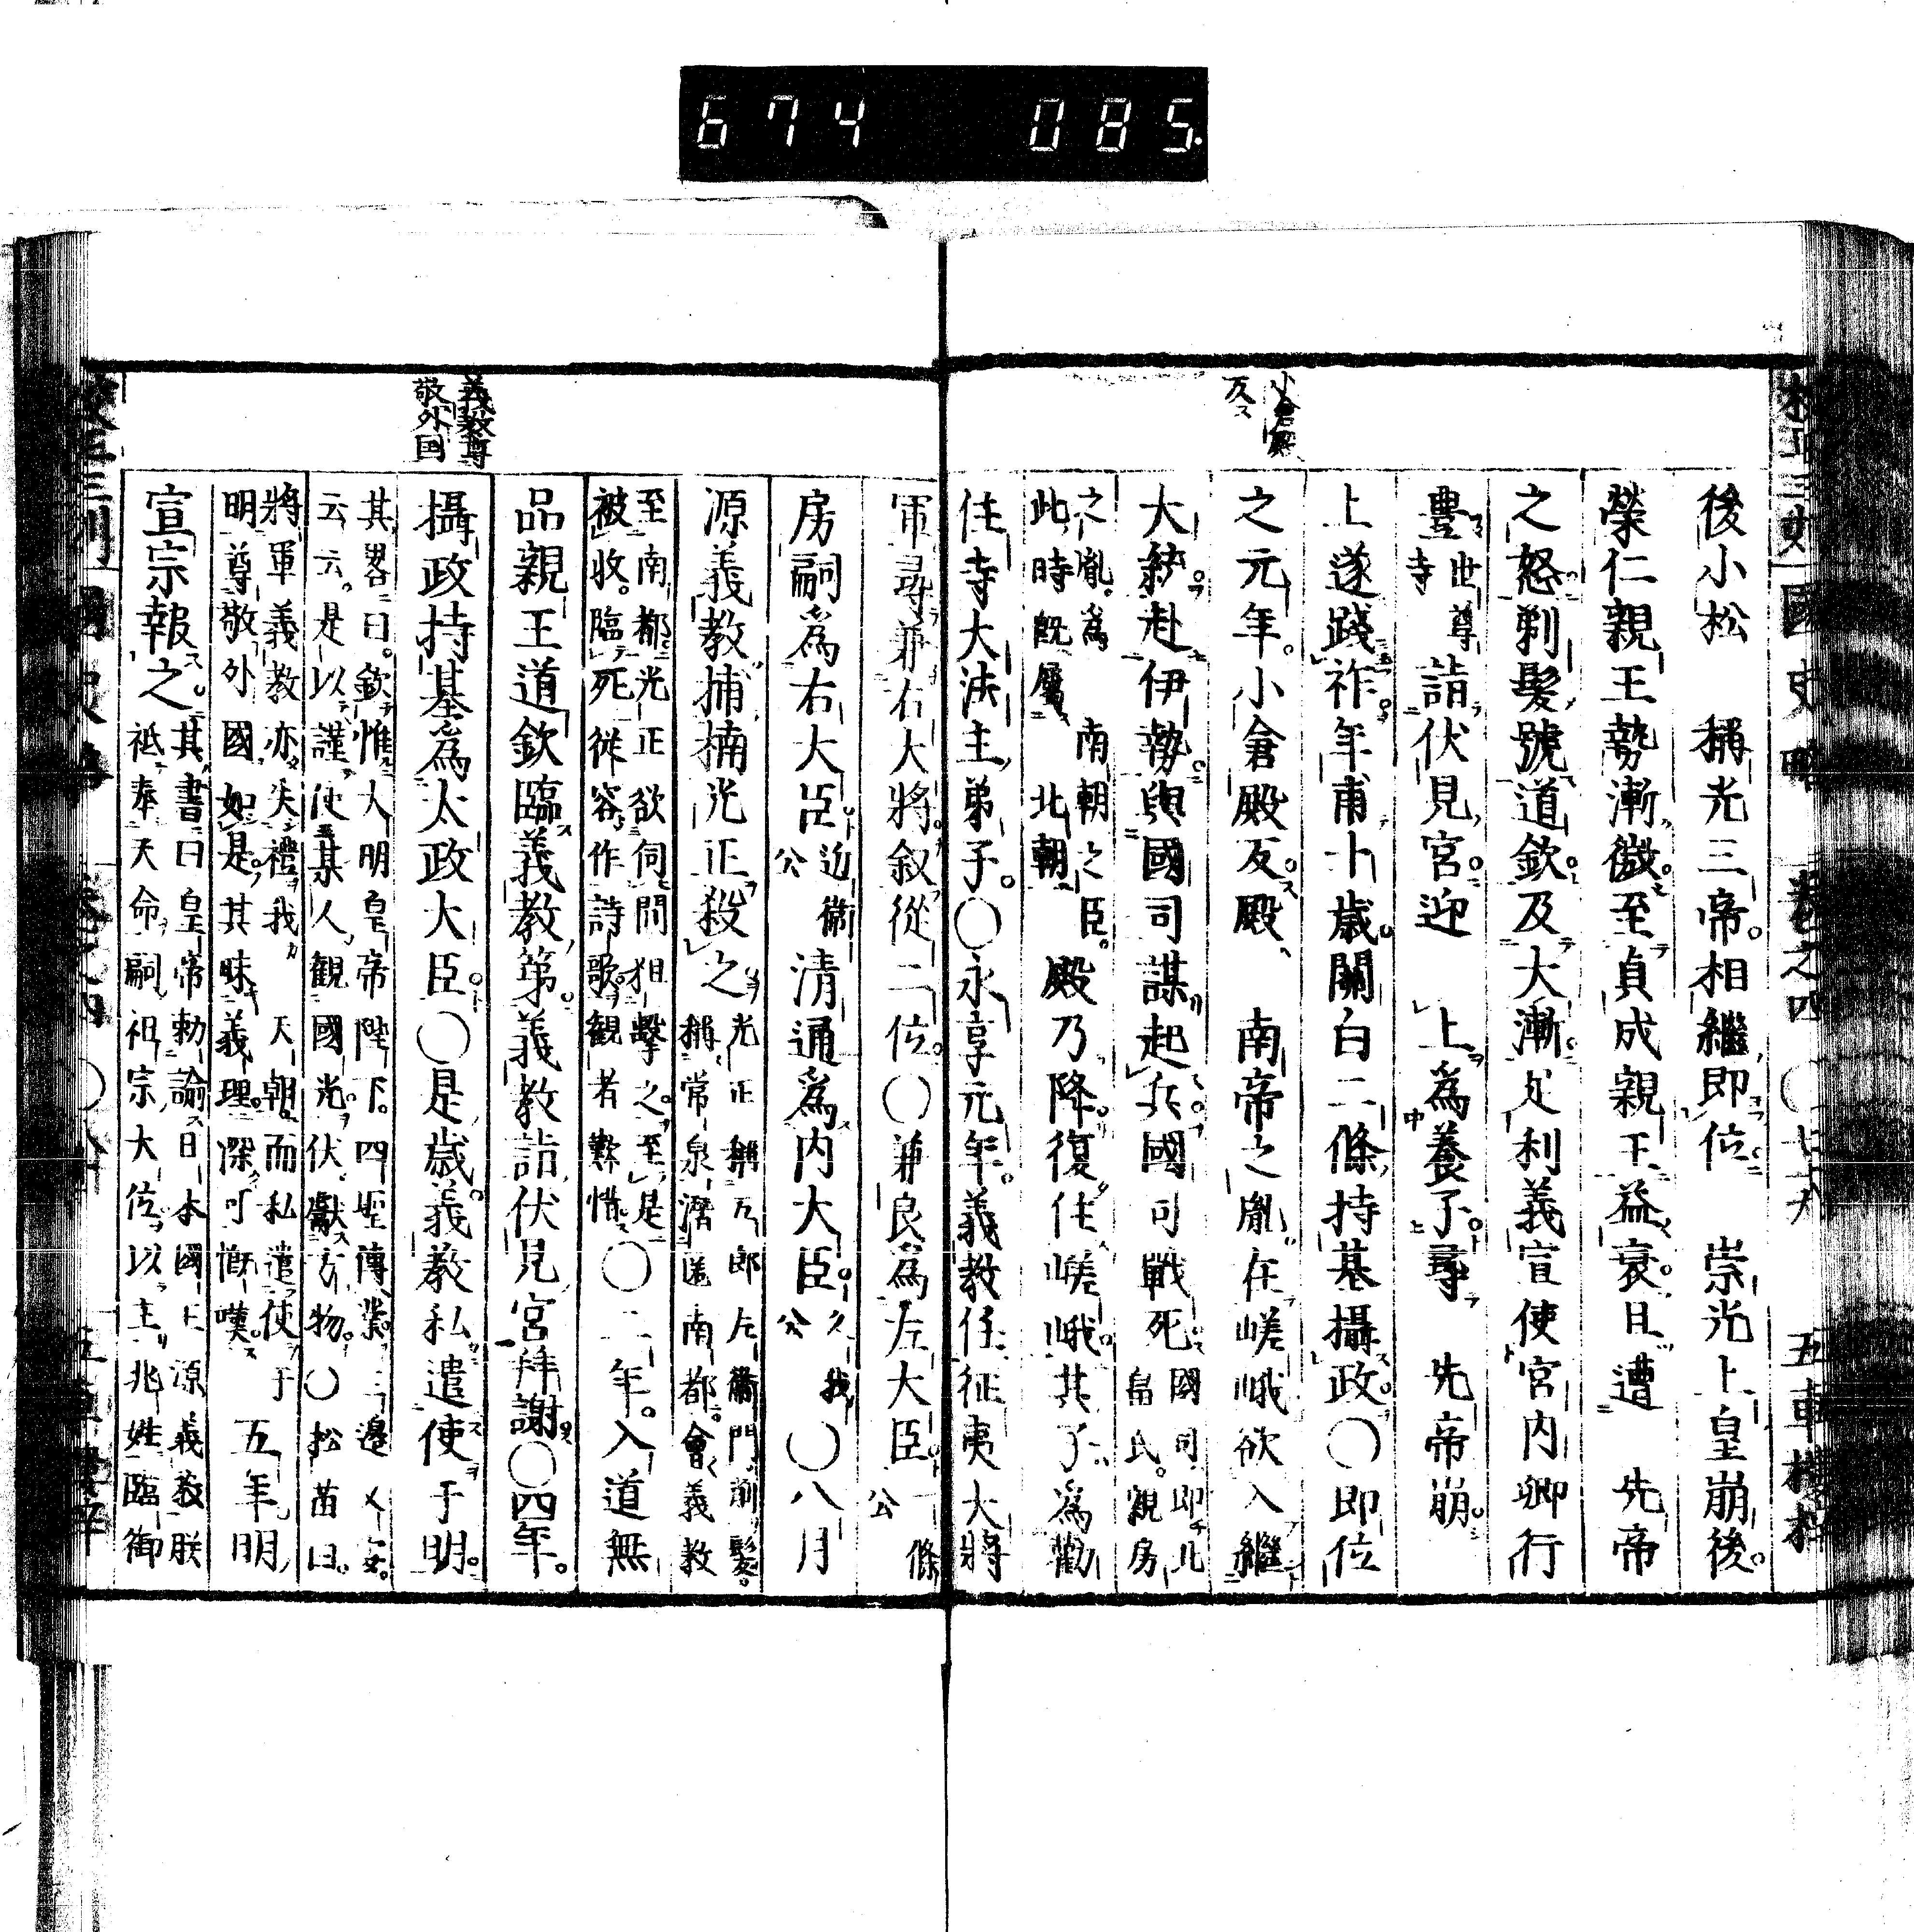 674 085
小倉殿
反ス
後小松 稱光三帝相繼即位 崇光上皇崩後
榮仁親王勢漸微至貞成親王益衰且遭 先帝
之怒剃髮號道欽及大漸足利義宣使宮内卿行
豐世尊寺詣伏見宮迎 上為養子尋 先帝崩
上遂踐祚年甫十歲關白二條持基攝政○即位
之元年小倉殿反殿 南帝之胤在嵯峨欲入繼
大統赴伊勢與國司謀起兵國司戰死國司即北畠氏親房
之胤為 南朝之臣此時既屬 北朝殿乃降復住嵯峨其子為勸
住寺大法主弟子○永享元年義教任征夷大將
軍尋兼右大將叙從二位○兼良為左大臣一條公
房嗣為右大臣近衛公清通為内大臣久我公○八月
義教尊
敬外国
源義教捕楠光正殺之光正稱五郎左衛門削髮稱常泉潛匿南都會義教
至南都光正欲伺間狙擊之至是被收臨死從容作詩歌觀者歎惜○二年入道無
品親王道欽臨義教第義教詣伏見宮拜謝○四年
攝政持基為太政大臣○是歲義教私遣使于明
其畧曰欽惟大明皇帝陛下四聖傳業三邊乂安云云是以謹使某人觀國光伏獻方物○松苗曰
將軍義教亦失禮我 天朝而私遣使于明尊敬外國如是其昧義理深可慨嘆 五年明
宣宗報之其書曰皇帝勅諭日本國王源義教朕祗奉天命嗣祖宗大位以主兆姓臨御
國史略 卷之四
五車樓梓